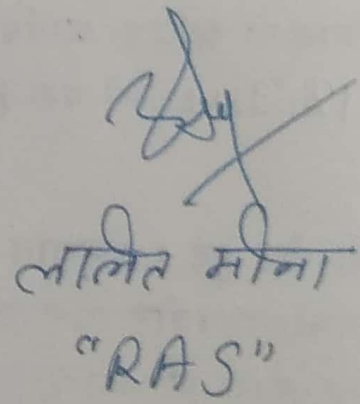 ललित मीना
"RAS"